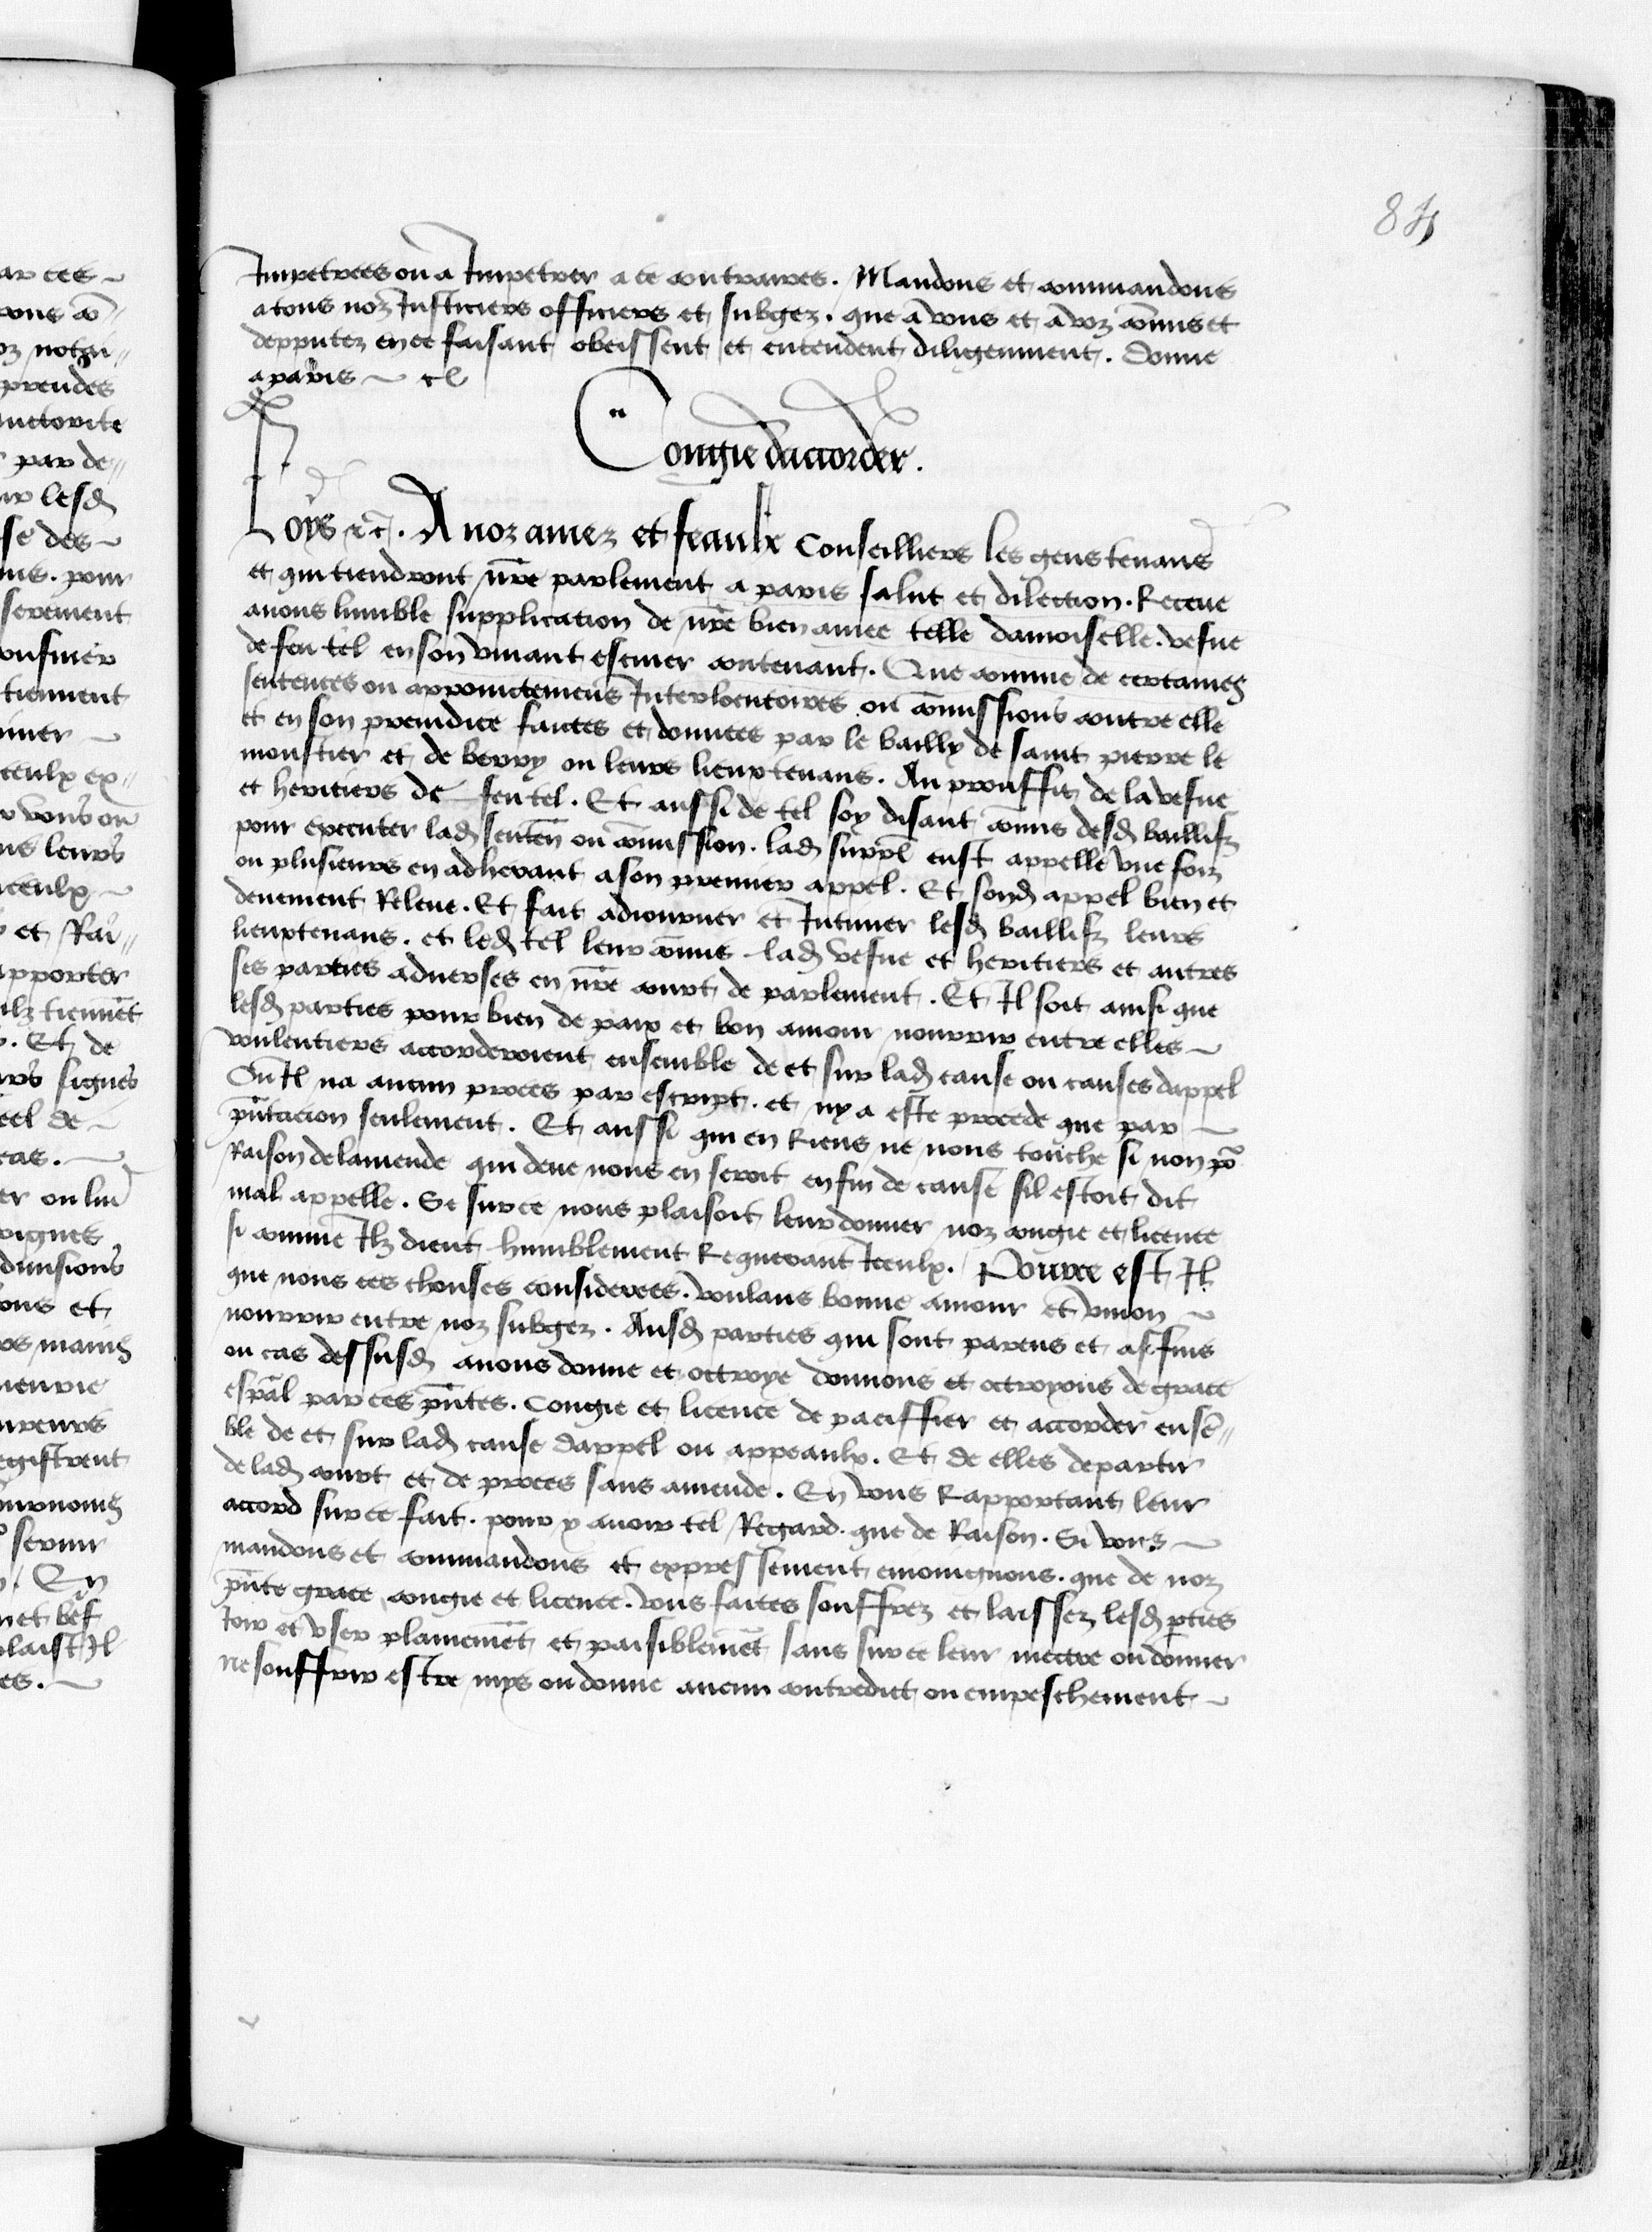 84
Impetrees ou a Impetrer a ce contraires. Mandons et commandons
a tous noz Justiciers officiers et subgez. que a vous et a voz cōmis et
depputez en ce faisant obeissent et entendent diligemment. Donne
a paris
Congie daccorder.
Loys &c̄. A noz amez et feaulx Conseilliers les gens tenans
et qui tiendront nr̄e parlement a paris salut et dilection. Receue
auons humble supplication de nr̄e bien amee telle damoiselle. vefue
de feu tel en son viuant escuier contenant. Que comme de certaines
sentences ou appoinctemens Interlocutoires ou cōmissions contre elle
et en son preiudice faictes et donnees par le bailly de saint pierre le
monstier et de berry ou leurs lieuxtenans. Au prouffit de la vefue
et heritiers de feu tel. Et aussi de tel soy disant cōmis desd baillifz
pour executer lad senten̄ ou cōmission. lad suppl̄ eust appelle vne foiz
ou plusieurs en adherant a son premier appel. Et sond appel bien et
deuement Releue. Et fait adiourner et Intimer lesd baillifz leurs
lieuxtenans. et led tel leur cōmis lad vefue et heritiers et autres
ses parties aduerses en nr̄e court de parlement. Et Il soit ainsi que
lesd parties pour bien de paix et bon amour nourrir entre elles
voulentiers accorderoient ensemble de et sur lad cause ou causes dappel
Ou Il na aucun proces par escript. et ny a este procede que par
pn̄tacion seulement. Et aussi qui en Riens ne nous touche si non po
Raison de lamende qui deue nous en seroit en fin de cause sil estoit dit
mal appelle. Se sur ce nous plaisoit leur donner noz congie et licence
si comme Ilz dient humblement Requerant Iceulx. Pource est Il
que nous ces choses considerees. voulans bonne amour et vnion
nourrir entre noz subgez. Ausd parties qui sont parens et affins
ou cas dessusd auons donne et octroye donnons et octroyons de grace
esp̄al par ces pn̄tes. Congie et licence de paciffier et accorder ensē-
ble de et sur lad cause dappel ou appeaulx. Et de elles departir
de lad court et de proces sans amende. En vous Rapportant leur
accord sur ce fait. pour y auoir tel Regard. que de Raison. Si vous
mandons et commandons et expressement enioignons. que de noz
pn̄te grace congie et licence. vous faites souffrez et laissez lesd p̄ties
Ioir et vser plainemēt et paisiblemēt sans sur ce leur mectre ou donner
ne souffrir estre mys ou donne aucun contredict ou empeschement